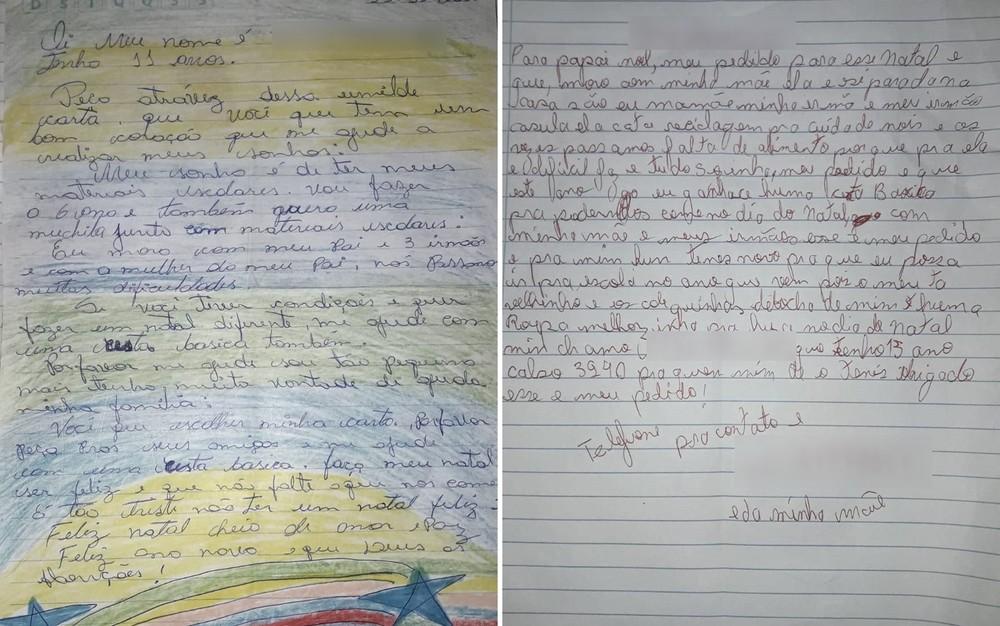 Oi Meu nome é
Tenho 11 anos.
Peço atrávez dessa umilde
carta que você que tem um
bom coração que me ajude a
realizar meus sonhos:
Meu sonho é de ter meus
materiais escolares. vou fazer
o 6 ano e também quero uma
muchila junto com materiais escolares:
Eu moro com meu Pai e 3 irmão
e com a mulher do meu Pai, nós Passamo
muitas dificuldades
Se você tiver condições e quer
fazer um natal diferente, me ajude com
uma cesta basica também.
Porfavor me ajude sou tão pequena
mais tenho muita vontade de ajuda
minha família:
Você que escolher minha carta. Porfavor
Peça Pros seus amigos e me ajude
com uma cesta basica. faça meu natal
ser feliz e que não falte o que nos come
É tão triste não ter um natal feliz:
Feliz natal cheio de amor e Paz
Feliz ano novo e que Deus os
Abençõe!
Para papai noel, meu pedido para esse Natal e
que, moro com minha mãe ela e separada na
casa são eu mamãe minha irmã e meu irmão
casula ela cata reciclagem pra cuida de nois e as
vezes passamos falta de alimento porque pra ela
e dificil faz tudo sozinha, meu pedido e que
este ano eu ganhace huma cesta Basica
pra podermos come no dia do Natal com
minha mãe e meus irmãos esse é meu pedido
e pra mim hum tenes novo pra que eu possa
ir pra escola no ano que vem pois o meu ta
velhinho e os coleguinhas debocha de mim e huma
Roupa melhorzinha pra usa no dia do Natal
mim chamo que tenho 13 ano
calso 3940 pra quem mim dé o tenis obrigado
esse e meu pedido!
Telefone pra contato e
e da minha mãe